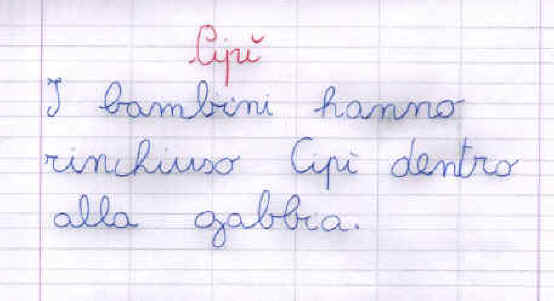 Cipì
I bambini hanno
rinchiuso Cipi dentro
alla gabbia.